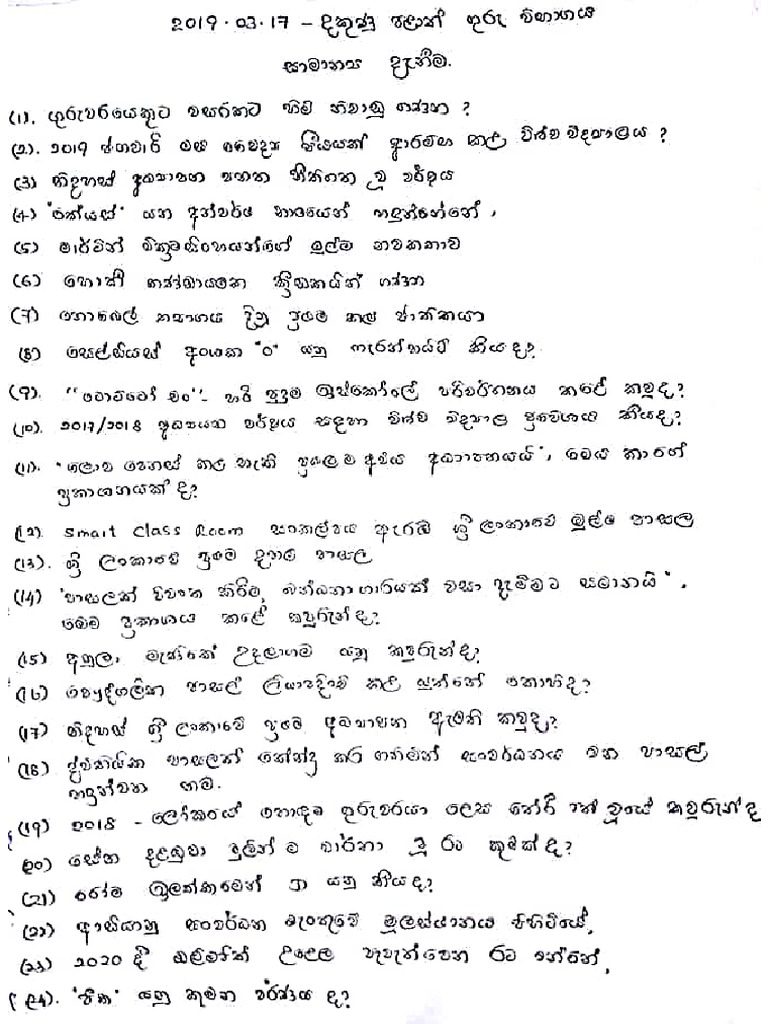 2019.03.17 - දකුණු පළාත් ගුරු විභාගය
සාමාන්‍ය දැනීම.
(1). ගුරුවරයෙකුට වසරකට හිමි නිවාඩු ගණන ?
(2). 2019 ජනවාරි මස වෛද්‍ය පීඨයක් ආරම්භ කල විශ්ව විද්‍යාලය ?
(3) නිදහස් අධ්‍යාපන පනත නීතිගත වූ වර්ෂය
(4) "රේයස්" යන අන්වර්ථ නාමයෙන් හඳුන්වන්නේ,
(5) මාර්ටින් වික්‍රමසිංහයන්ගේ මුල්ම නවකතාව
(6) හොකී කණ්ඩායමක ක්‍රීඩකයින් ගණන
(7) නොබෙල් ත්‍යාගය දිනූ ප්‍රථම කළු ජාතිකයා
(8) සෙල්සියස් අංශක "0" යනු ෆැරන්හයිට් කීයද?
(9). "ටොට්ටෝ චං" - හරි පුදුම ඉස්කෝලේ පරිවර්තනය කළේ කවුද?
(10). 2017/2018 අධ්‍යයන වර්ෂය සඳහා විශ්ව විද්‍යාල ප්‍රවේශය කීයද?
(11). "ලොව වෙනස් කල හැකි ප්‍රබලම අවිය අධ්‍යාපනයයි", මෙය කාගේ
ප්‍රකාශනයක් ද?
(12). Smart Class Room සංකල්පය ඇරඹි ශ්‍රී ලංකාවේ මුල්ම පාසල
(13). ශ්‍රී ලංකාවේ ප්‍රථම දහම් පාසල
(14) "පාසලක් විවෘත කිරීම, බන්ධනාගාරයක් වසා දැමීමට සමානයි".
මෙම ප්‍රකාශය කළේ කවුරුන්ද?
(15) අනුලා මැණිකේ උදලාගම යනු කවුරුන්ද?
(16) පෞද්ගලික පාසල් ලියාපදිංචි කල යුත්තේ කොහිද?
(17) නිදහස් ශ්‍රී ලංකාවේ ප්‍රථම අධ්‍යාපන ඇමති කවුද?
(18) ද්විතියික පාසලක් කේන්ද්‍ර කර ගනිමින් සංවර්ධනය වන පාසල්
හඳුන්වන නම.
(19) 2018 - ලෝකයේ හොඳම ගුරුවරයා ලෙස තේරී පත් වූයේ කවුරුන් ද
(20) සේනා දළඹුවා මුලින් ම වාර්තා වූ රට කුමක් ද?
(21) රෝම ඉලක්කමෙන් යනු කීයද?
(22) ආසියානු සංවර්ධන බැංකුවේ මූලස්ථානය පිහිටියේ,
(23) 2020 දී ඔලිම්පික් උළෙල පැවැත්වෙන රට වන්නේ,
(24). "පීත" යනු කුමන වර්ණය ද?